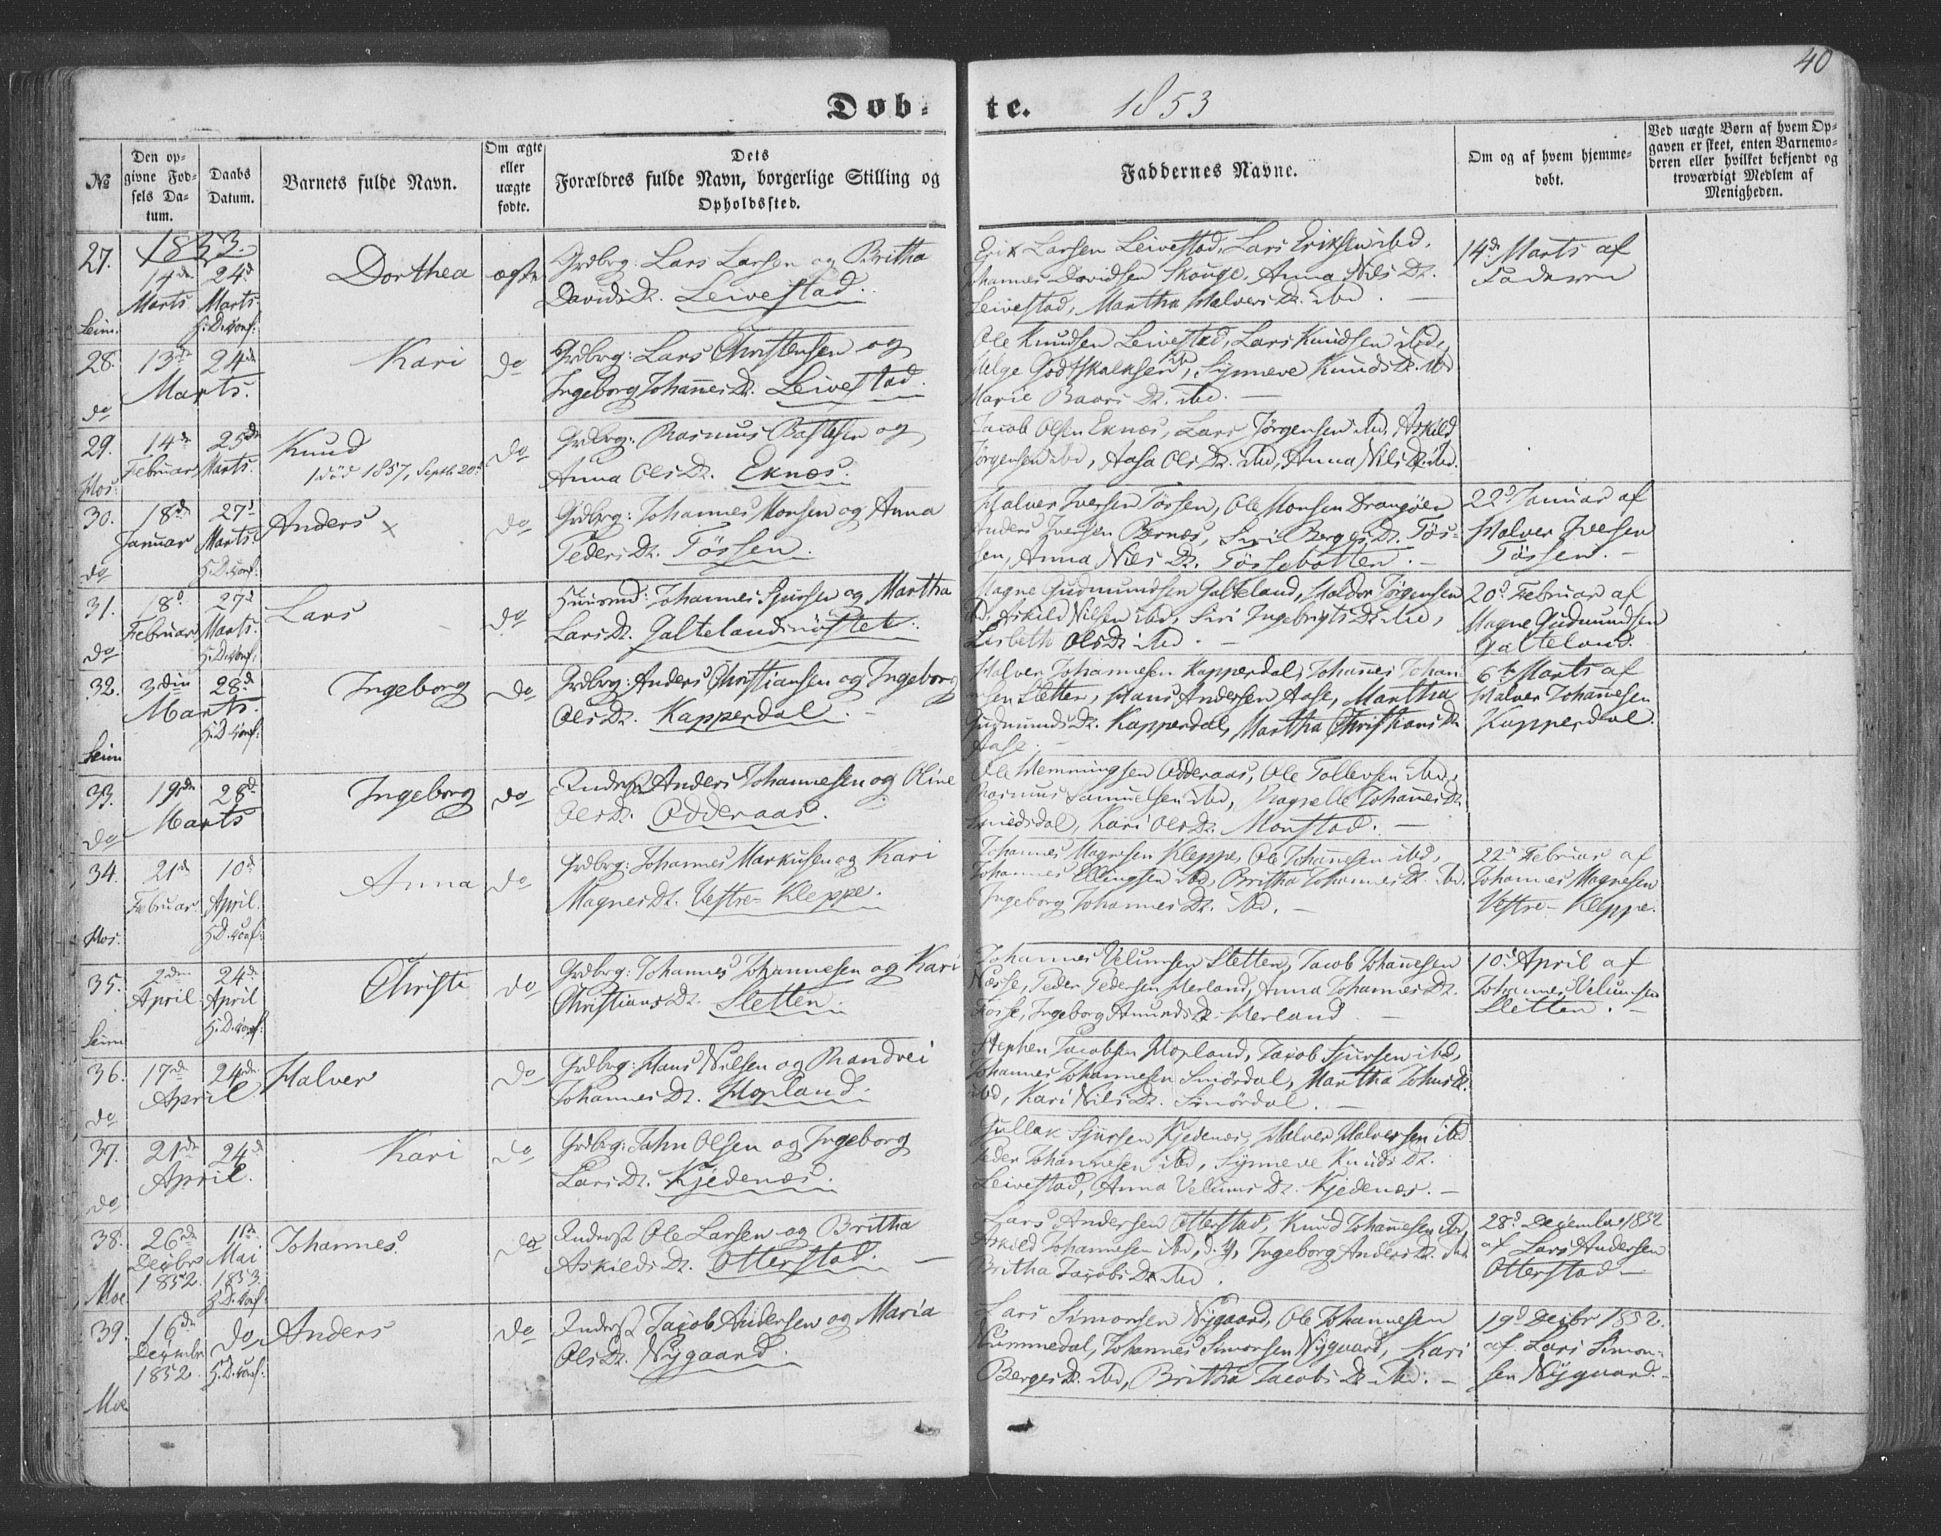 40
Døb- te. 1853
№
Den op-
givne Fød-
sels Da-
tum.
Daabs
Datum.
Barnets fulde Navn.
Om ægte
eller
uægte
fødte.
Dets
Forældres fulde Navn, borgerlige Stilling og
Opholdssted.
Faddernes Navne.
Om og af hvem hjemme-
døbt.
Ved uægte Børn af hvem Op-
gaven er skeet, enten Barnemo-
deren eller hvilket bekjendt og
troværdigt Medlem af
Menigheden.
27.
1853.
14de
Marts
24d
Marts.
H.D. conf:
Seim.
Dorthea
ægte
Grdbrg: Lars Larsen og Britha
Davids Dr. Leivestad.
Erik Larsen Leivestad, Lars Eriksen ibd,
Johannes Davidsen Skouge, Anna Nils Dr.
Leivestad, Martha Halvers Dr. ibd. —
14de Marts af
Faderen
28.
13de
24de
Marts.
do
Kari
do
Grdbrg: Lars Christensen og
Ingeborg Johannes Dr. Leivestad.
Ole Knudsen Leivestad, Lars Knudsen ibd,
Helge Godtskalksen ibd, Synneve Knuds Dr. ibd
Marie Baars Dr. ibd. —
29.
14de
Februar
25de
Marts.
Hos:
Knud
død 1857, Septb. 20
do
Grdbrg: Rasmus Bastesen og
Anna Ols Dr. Eknæs.
Jacob Olsen Eknæs, Lars Jørgensen ibd, Askild
Jørgensen ibd, Aasa Ols Dr. ibd, Anna Nils Dr. ibd.
30.
18de
Januar
27d
Marts.
H.D. conf:
do
Anders ×
do
Grdbrg: Johannes Monsen og Anna
Peders Dr. Tössen.
Halver Iversen Tössen, Ole Monsen Drangöen
Anders Iversen Bernæs, Siri Berges Dr. Tös-
sen, Anna Nils Dr. Tössebotten. —
22d Januar af
Halver Iversen
Tössen. —
31.
18d
Februar
27d
Marts.
H.D. conf:
do
Lars
do
Huusmd: Johannes Sjursen og Martha
Lars Dr. Galtelandsnöstet.
Magne Gudmundsen Galteland, Haldor Jørgensen
ibd, Askild Nilsen ibd, Siri Ingebrigts Dr. ibd,
Lisbeth Ols Dr. ibd. —
20d Februar af
Magne Gudmundsen
Galteland.
32.
3die
28d
Marts.
H.D. conf:
Seim
Ingeborg
do
Grdbrg: Anders Christiansen og Ingeborg
Ols Dr. Kapperdal. —
Halver Johannesen Kapperdal, Johannes Johan-
nesen Sletten, Hans Andersen Aase, Martha
Gudmunds Dr. Kapperdal, Martha Christians Dr.
Aase. —
6te Marts af
Halver Johannesen
Kapperdal.
33.
19de
28d
Marts
do
Ingeborg
do
Inderst Anders Johannesen og Oline
Ols Dr. Odderaas.
Ole Hemmingsen Odderaas, Ole Tollevsen ibd,
Rasmus Samuelsen ibd, Ragnelle Johannes Dr.
Kari Ols Dr. Monstad. —
34.
21de
Februar
10d
April.
H.D. conf:
Hos.
Anna
do
Grdbrg: Johannes Markusen og Kari
Magnes Dr. Vestre-Kleppe.
Johannes Magnesen Kleppe, Ole Johannesen ibd,
Johannes Ellingsen ibd, Britha Johannes Dr. ibd.
Ingeborg Johannes Dr. ibd. —
22d Februar af
Johannes Magnesen
Vestre-Kleppe.
35.
2den
April
24de
April
H.D. conf:
Seim
Christi
do
Grdbrg: Johannes Johannesen og Kari
Christians Dr. Sletten.
Johannes Velumsen Sletten, Jacob Johannesen
Næsse, Peder Pedersen Herland, Anna Johannes Dr.
Fosse, Ingeborg Amunds Dr. Herland —
10d April af
Johannes Velumsen
Sletten. —
36.
17de
24de
April
do
Halver
do
Grdbrg: Hans Nilsen og Brandvei
Johannes Dr. Hopland.
Stephen Jacobsen Hopland, Jacob Sjursen ibd,
Johannes Johannesen Smördal, Martha Johns Dr.
ibd, Kari Nils Dr. Smördal. —
37.
21de
24de
April.
do
Kari
do
Grdbrg: John Olsen og Ingeborg
Lars Dr. Kjedenæs.
Gullak Sjursen Kjedenæs, Halver Halversen ibd
Peder Johannesen ibd, Synneve Knuds Dr.
Leivestad, Anna Velums Dr. Kjedenæs. —
38.
26de
Decbr
1852.
1ste
Mai
1853.
H.D. conf:
Moe
Johannes.
do
Inderst Ole Larsen og Britha
Askilds Dr. Otterstad. —
Lars Andersen Otterstad, Knud Johannesen ibd,
Askild Johannesen ibd, d. y, Ingeborg Anders Dr. ibd.
Britha Jacobs Dr. ibd.
28d December 1852
af Lars Andersen
Otterstad —
39.
16de
Decembr
1852.
do
H.D. conf:
Moe
Anders
do
Inderst Jacob Andersen og Maria
Ols Dr. Nygaard.
Lars Simonsen Nygaard, Ole Johannesen
Nummedal, Johannes Simonsen Nygaard, Kari
Berges Dr. ibd, Britha Jacobs Dr. ibd. —
19d Decbr 1852.
af Lars Simon-
sen Nygaard. —